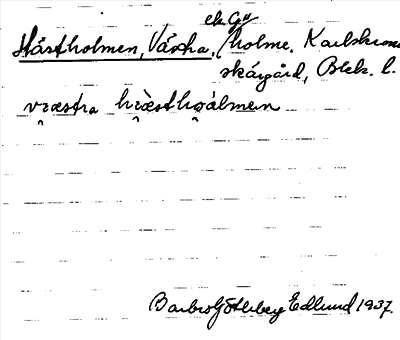 ek. Gu
Hästholmen, Västra, /holme. Karlskrona
skärgård, Blek. l.
væstra hæ̀sthɷálmen
Barbro Götberg Edlund 1937.